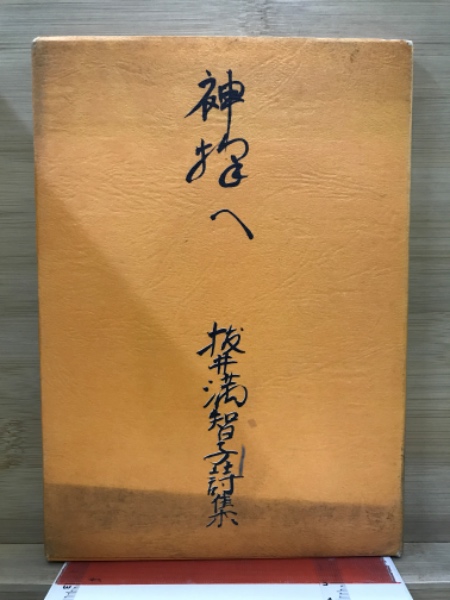 神へ
抜井満智子詩集